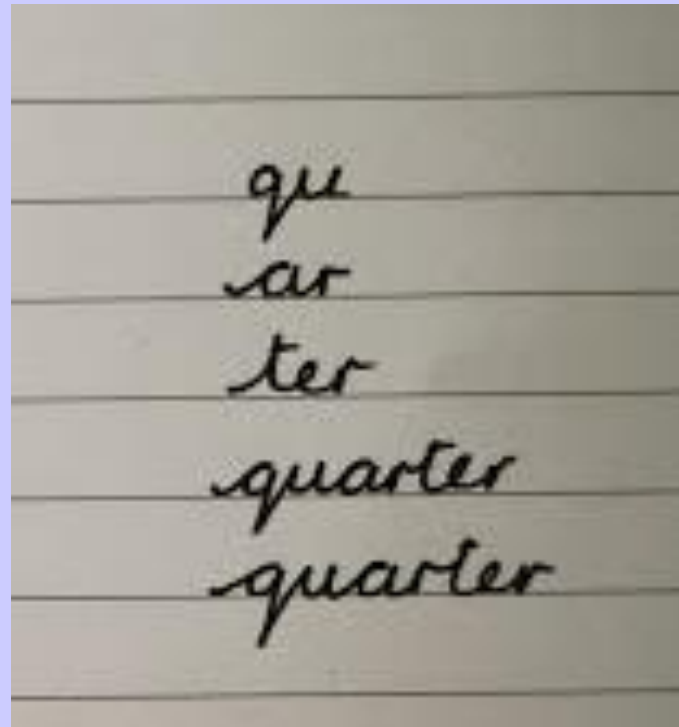 qu
ar
ter
quarter
quarter